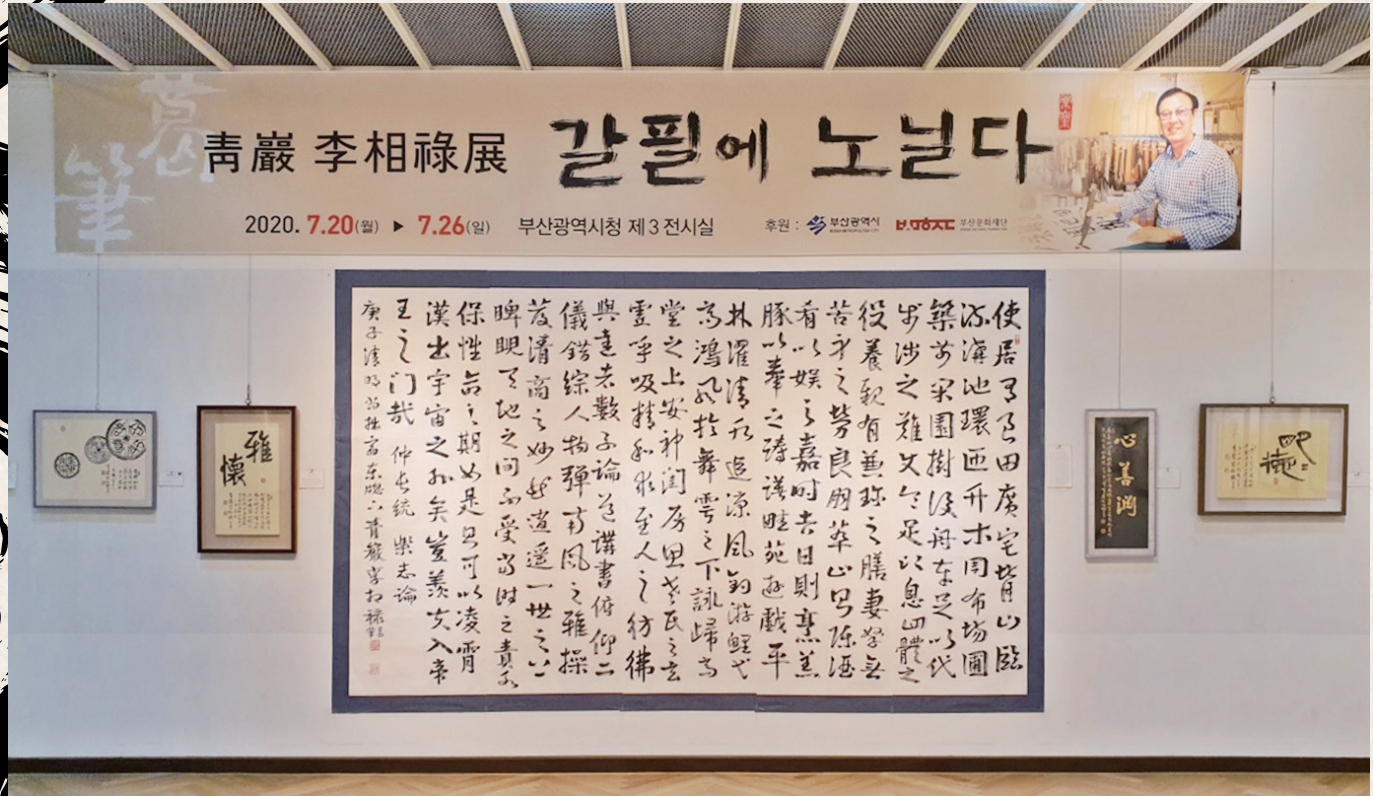 葛筆
靑巖 李相祿展
갈필에 노닐다
2020. 7.20(월) ▶ 7.26(일)
부산광역시청 제3전시실
후원 :
부산광역시
부산문화재단
使居有良田廣宅背山臨
流溝池環匝竹木周布場圃
築前果園樹後舟車足以代
步涉之難使令足以息四體之
役養親有兼珍之膳妻孥無
苦身之勞良朋萃止則陳酒
肴以娛之嘉時吉日則烹羔
豚以奉之躊躇畦苑遊戲平
林濯清水追涼風釣游鯉弋
高鴻風於舞雩之下詠歸高
堂之上安神閨房思老氏之玄
虛呼吸精和求至人之彷彿
與達者數子論道講書俯仰二
儀錯綜人物彈南風之雅操
發清商之妙曲逍遙一世之上
睥睨天地之間不受當時之責永
保性命之期如是則可以凌霄
漢出宇宙之外矣豈羨夫入帝
王之門哉 仲長統 樂志論
庚子清明 東窓下 青巖 李相祿
雅懷
心善淵